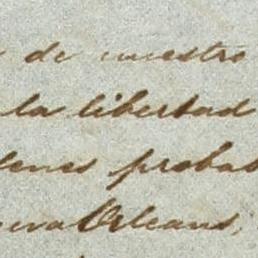 de nuestro
la libertad
denes probab
ueva Orleans,